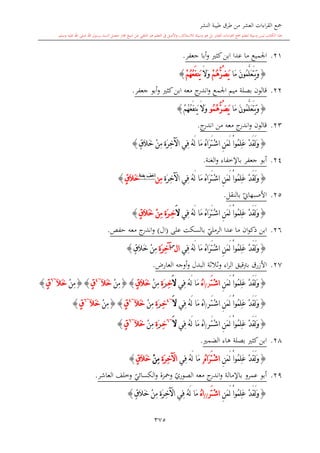 جمع القراءات العشر من طرق طيبة النشر
٢١. الجميع ما عدا ابن كثير وأبا جعفر.
﴿ وَيَتَعَلَّمُونَ مَا يَضُرُّهُمْ وَلَا يَنفَعُهُمْ ﴾
٢٢. قالون بصلة ميم الجمع واندرج معه ابن كثير وأبو جعفر.
﴿ وَيَتَعَلَّمُونَ مَا يَضُرُّهُمُو وَلَا يَنفَعُهُمْ ﴾
٢٣. قالون واندرج معه من اندرج.
﴿ وَلَقَدْ عَلِمُواْ لَمَنِ اشْتَرَاهُ مَا لَهُ فِي الْآخِرَةِ مِنْ خَلَاقٍ ﴾
٢٤. أبو جعفر بالإخفاء والغنة.
﴿ وَلَقَدْ عَلِمُواْ لَمَنِ اشْتَرَاهُ مَا لَهُ فِي الْآخِرَةِ مِنْ خَلَاقٍ ﴾
٢٥. الأصبهانيّ بالنقل.
﴿ وَلَقَدْ عَلِمُواْ لَمَنِ اشْتَرَاهُ مَا لَهُ فِي لَاخِرَةِ مِنْ خَلَاقٍ ﴾
٢٦. ابن ذكوان ما عدا الرمليّ بالسكت على (ال) واندرج معه حفص.
﴿ وَلَقَدْ عَلِمُواْ لَمَنِ اشْتَرَاهُ مَا لَهُ فِي الْآخِرَةِ مِنْ خَلَاقٍ ﴾
٢٧. الأزرق بترقيق الراء وثلاثة البدل وأوجه العارض.
﴿ وَلَقَدْ عَلِمُواْ لَمَنِ اشْتَرَاهُ مَا لَهُ فِي لَاخِرَةِ مِنْ خَلَاقٍ ﴾ ﴿ مِنْ خَلَاقٍ ﴾ ﴿ مِنْ خَلَاقٍ ﴾
﴿ وَلَقَدْ عَلِمُواْ لَمَنِ اشْتَرَاهُ مَا لَهُ فِي لَاخِرَةِ مِنْ خَلَاقٍ ﴾ ﴿ مِنْ خَلَاقٍ ﴾
﴿ وَلَقَدْ عَلِمُواْ لَمَنِ اشْتَرَاهُ مَا لَهُ فِي لَاخِرَةِ مِنْ خَلَاقٍ ﴾
٢٨. ابن كثير بصلة هاء الضمير.
﴿ وَلَقَدْ عَلِمُواْ لَمَنِ اشْتَرَاهُ مَا لَهُ فِي الْآخِرَةِ مِنْ خَلَاقٍ ﴾
٢٩. أبو عمرو بالإمالة واندرج معه الصوريّ وحمزة والكسائيّ وخلف العاشر.
﴿ وَلَقَدْ عَلِمُواْ لَمَنِ اشْتَرَاهُ مَا لَهُ فِي الْآخِرَةِ مِنْ خَلَاقٍ ﴾
٣٧٥